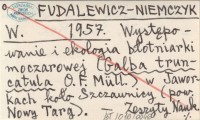 FUDALEWICZ-NIEMCZYK
W. 1957. Występo-
wanie i ekologia błotniarki
moczarowej (Galba trun-
catula O.F. Müll.) w Jawor-
kach koło Szczawnicy (pow.
Nowy Targ). — Zeszyty Nauk.